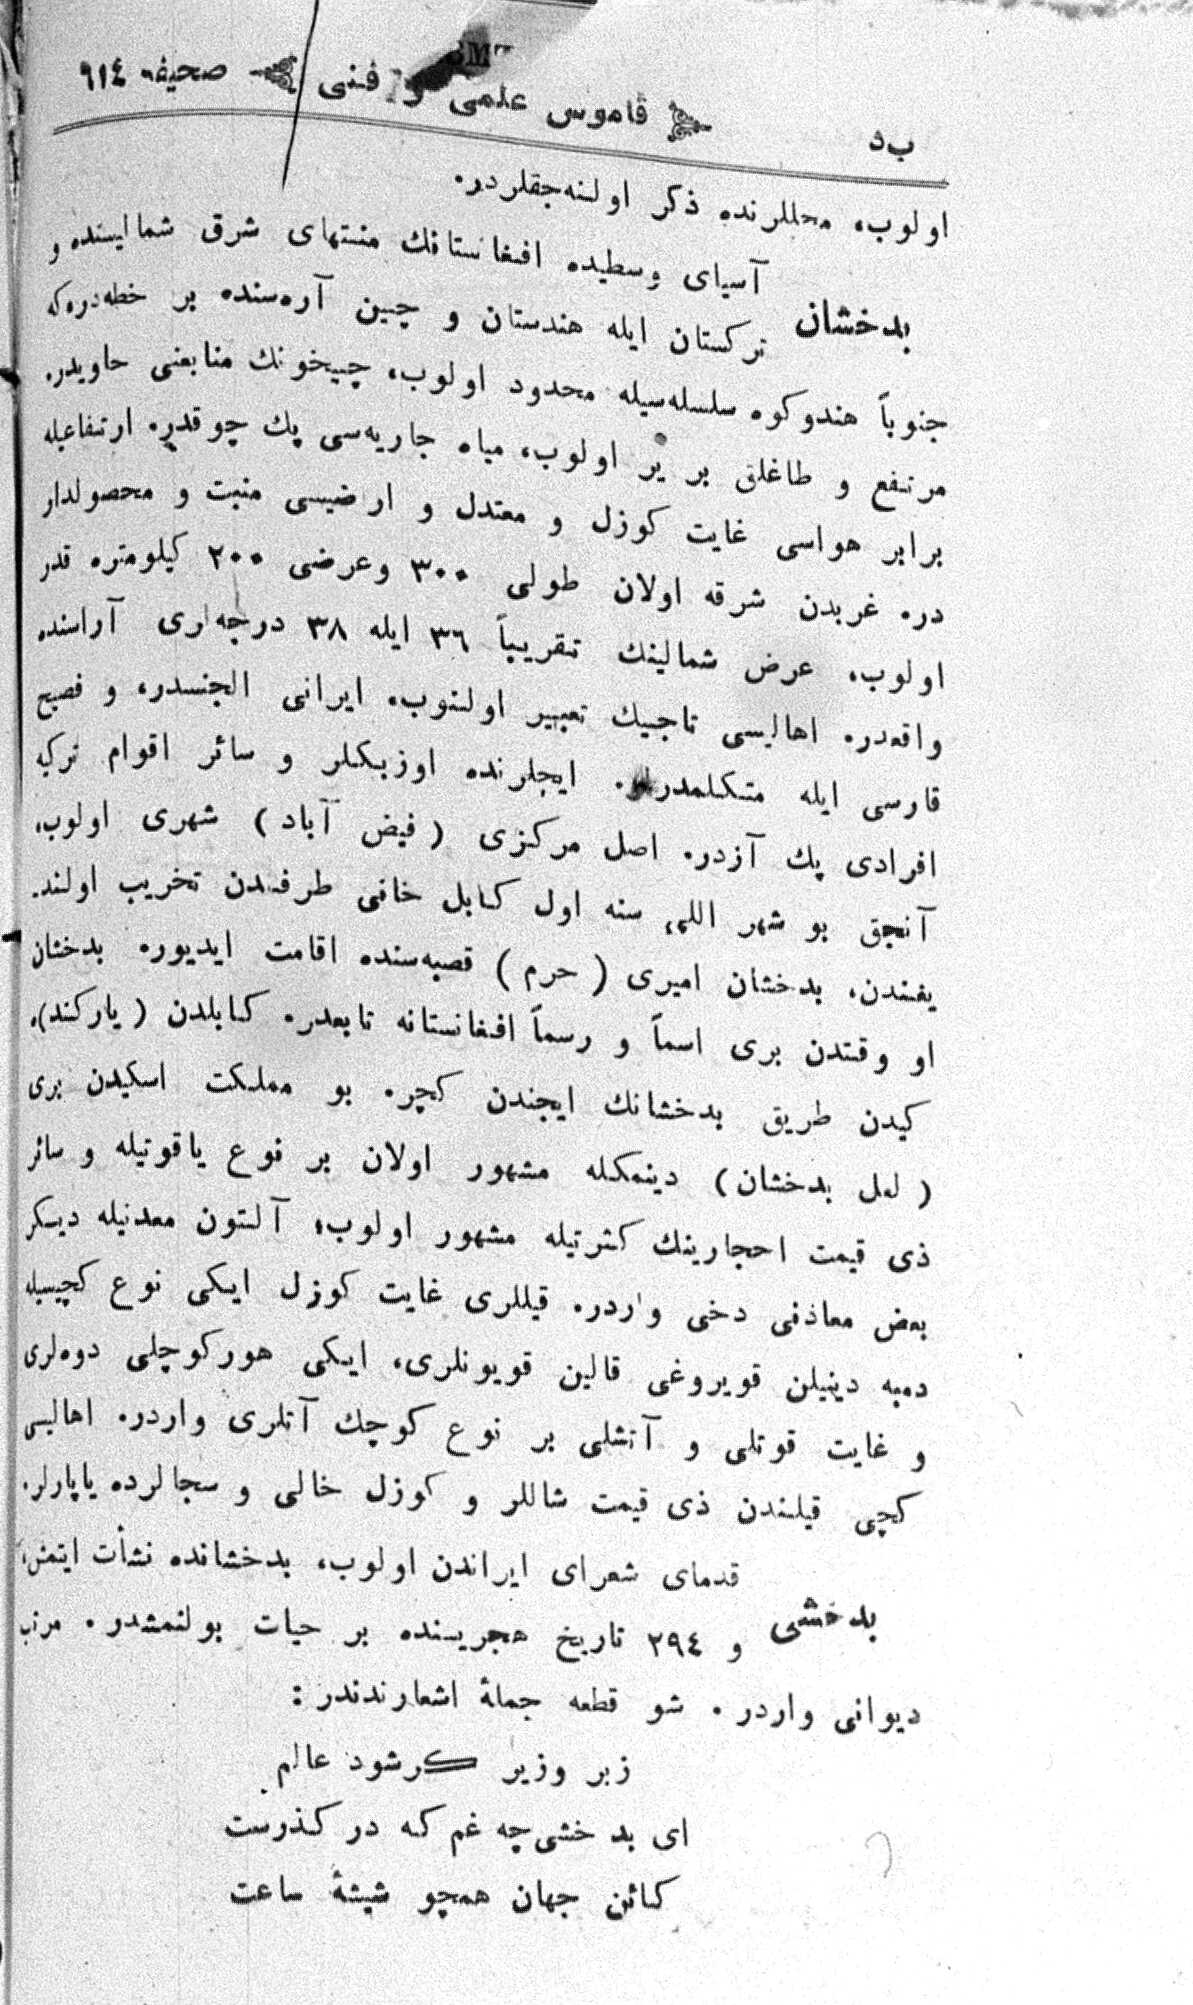 ب‌د قاموس علمی و فنی صحیفه ٩١٤
اولوب، محللرنده ذکر اولنه‌جقلردر.
آسیای وسطیده افغانستانك منتهای شرق شمالیسنده و
بدخشان
ترکستان ایله هندستان و چین آره‌سنده بر خطه‌درکه
جنوباً هندوکوه سلسله‌سیله محدود اولوب، جیحونك منابعنی حاویدر.
مرتفع و طاغلق بر یر اولوب، میاه جاریه‌سی پك چوقدر. ارتفاعیله
برابر هواسی غایت کوزل و معتدل و اراضیسی منبت و محصولدار
در. غربدن شرقه اولان طولی ٣٠٠ وعرضی ٢٠٠ کیلومتره قدر
اولوب، عرض شمالینك تقریباً ٣٦ ایله ٣٨ درجه‌لری آراسنده
واقعدر. اهالیسی تاجیك تعبیر اولنوب. ایرانی الجنسدر، و فصیح
فارسی ایله متکلمدرلر. ایچلرنده اوزبکلر و سائر اقوام ترکیه
افرادی پك آزدر. اصل مرکزی (فیض آباد) شهری اولوب،
آنجق بو شهر اللی سنه اول کابل خانی طرفندن تخریب اولند.
یغندن، بدخشان امیری (حرم) قصبه‌سنده اقامت ایدیور. بدخشان
او وقتدن بری اسماً و رسماً افغانستانه تابعدر. کابلدن (یارکند)ه
کیدن طریق بدخشانك ایچندن کچر. بو مملکت اسکیدن بری
(لعل بدخشان) دینمکله مشهور اولان بر نوع یاقوتیله و سائر
ذی قیمت احجارینك کثرتیله مشهور اولوب، آلتون معدنیله دیکر
بعض معادنی دخی واردر. قیللری غایت کوزل ایکی نوع کچیسیله
دمبه دینیلن قویروغی قالین قویونلری، ایکی هورکوچلی دوه‌لری
و غایت قوتلی و آتشلی بر نوع کوچك آتلری واردر. اهالیسی
کچی قیلندن ذی قیمت شاللر و کوزل خالی و سجالرده یاپارلر.
قدمای شعرای ایراندن اولوب، بدخشانده نشأت ایتمش،
بدخشی
و ٢٩٤ تاریخ هجریسنده بر حیات بولنمشدر. مرتب
دیوانی واردر. شو قطعه جملهٔ اشعارندندر:
زبر وزیر کرشود عالم
ای بدخشی چه غم که در کذرست
کائن جهان همچو شیشهٔ ساعت